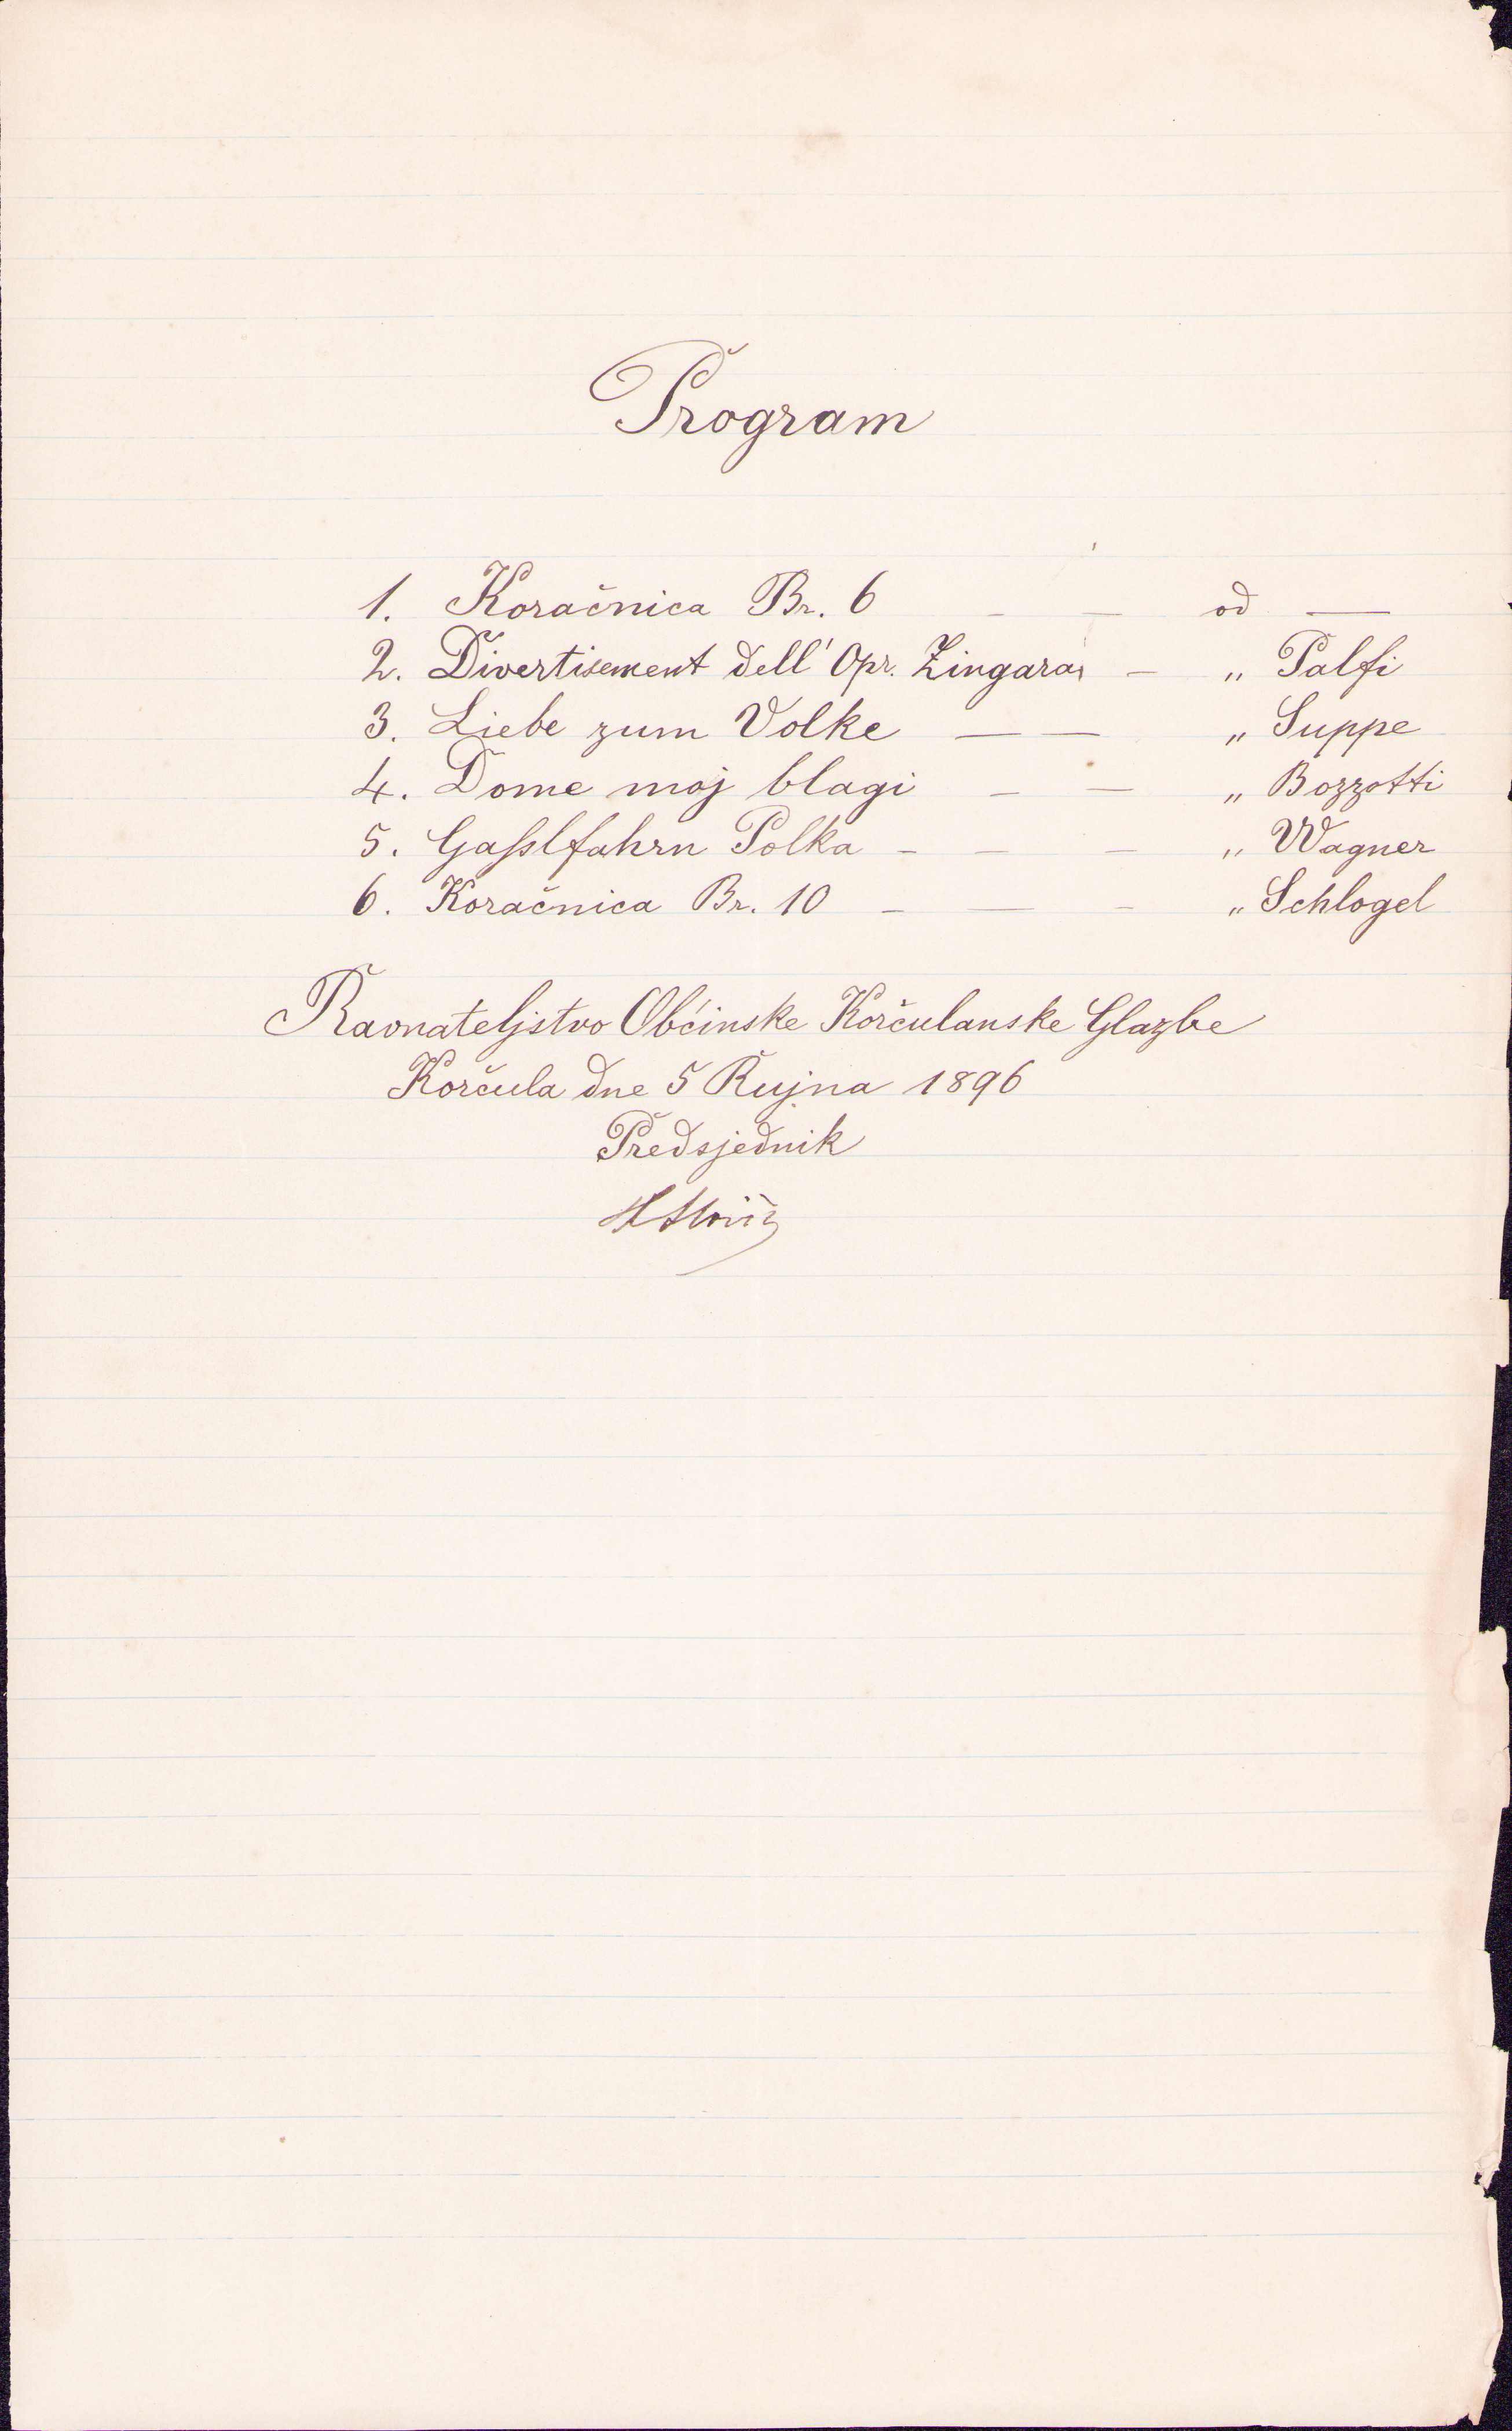 Program
1. Koračnica Br. 6 - - od —
2. Divertisement dell' Opr. Zingara - „ Palfi
3. Liebe zum Volke — — „ Suppe
4. Dome moj blagi - — „ Bozzotti
5. Gasslfahrn Polka - - - „ Wagner
6. Koračnica Br. 10 - — - „ Schlogel
Ravnateljstvo Občinske Korčulanske Glazbe
Korčula dne 5 Rujna 1896
Predsjednik